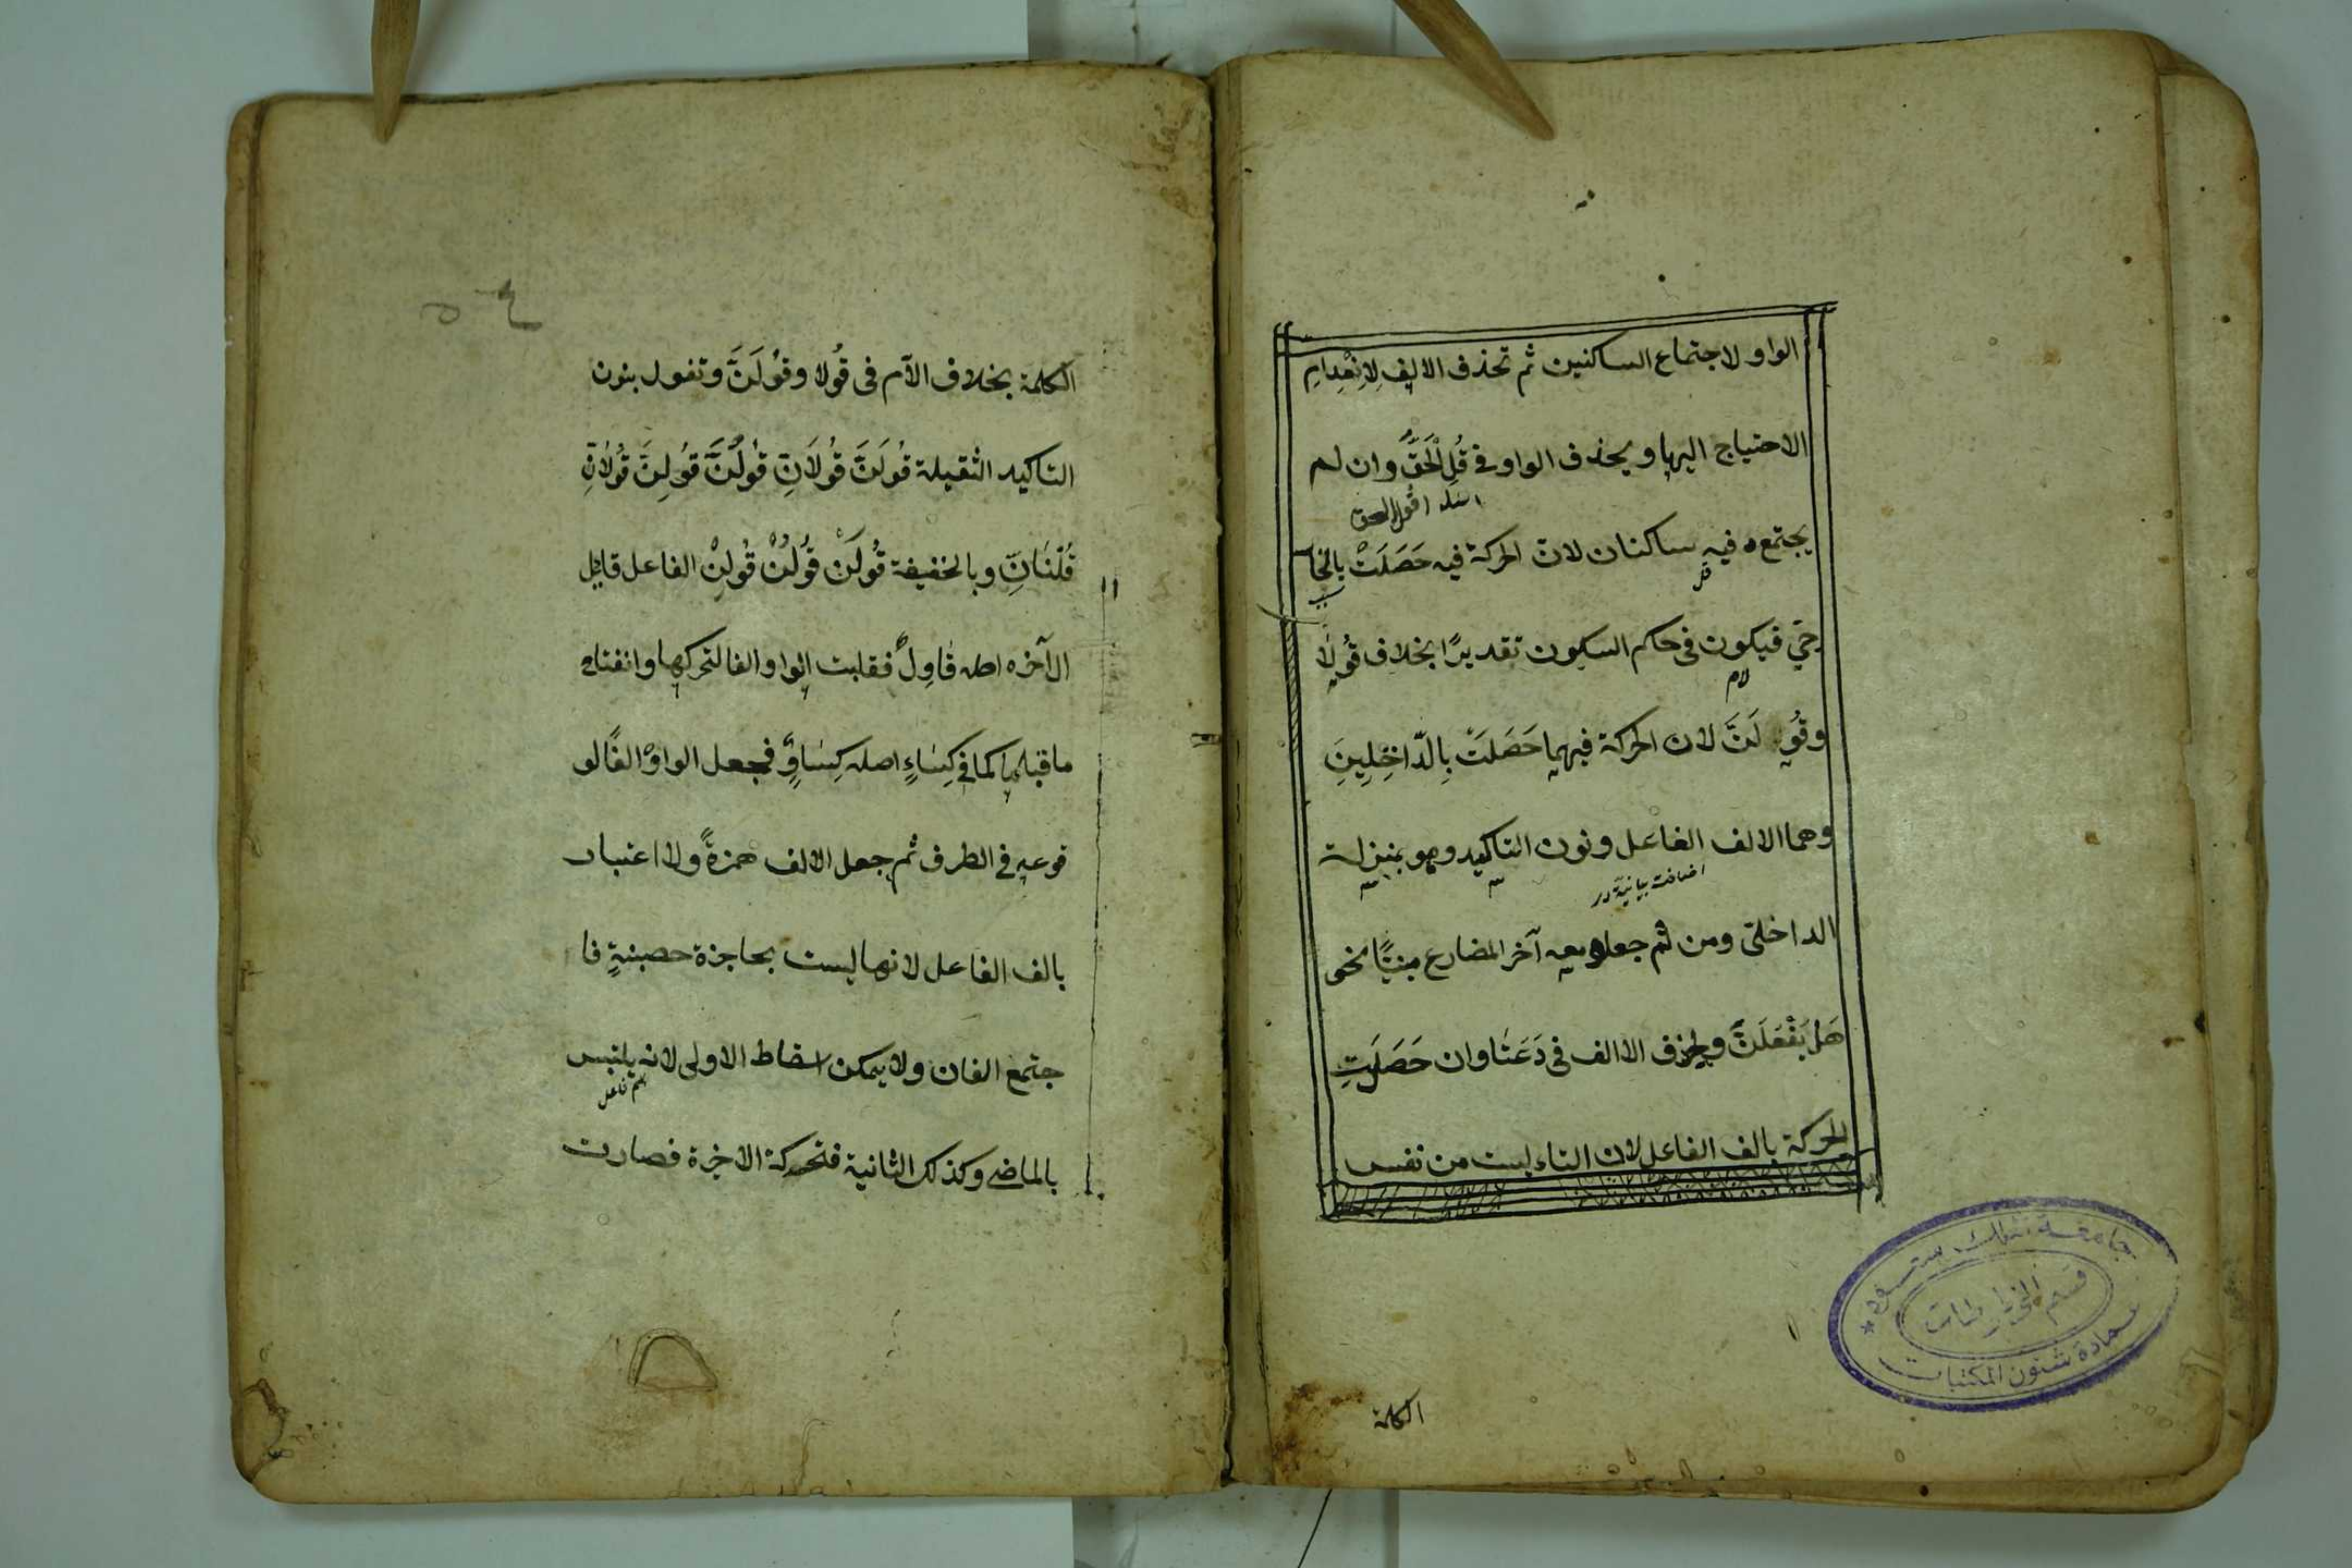 الواو لاجتماع الساكنين ثم تحذف الالف لِاِنْعِدامِ
الاحتياج اليها ويحذف الواو في قُلِ لْحَقَّ وان لم
اقول الحق
يجتمع فيه ساكنان لان الحركة فيه حَصَلَتْ بالخا
رجيّ فيكون في حكم السكون تقديرًا بخلاف قُولَا
لام
وقُو لَنَّ لان الحركة فيهما حَصَلَتْ بِالدّاخِلِينِ
وهما الالف الفاعل ونون التاكيد وهو بمنزلة
اضافت بيانيه در
الداخلى ومن ثم جعلو معه آخر المضارع مبنيًّا نحو
هَلْ يَفْعَلَنَّ ويحذف الالف في دَعَتَا وان حَصَلَتِ
الحركة بالف الفاعل لان التاء ليست من نفس
الكلمة
جامعة الملك سعود
قسم المخطوطات
عمادة شئون المكتبات
الكلمة بخلاف الآم فى قُولا وقُولَنَّ وتقول بنون
التاكيد الثقيلة قُولَنَّ قُولَانِّ قُولُنَّ قُولِنَّ قُولَانِّ
قُلْنَانِّ وبالخفيفة قُولَنْ قُولُنْ قُولِنْ الفاعل قائِل
الآخره اصله قَاوِلٌ فقلبت الواو الفا لتحركها وانفتاح
ما قبلها كما في كِسَاءٍ اصله كِسَاوٌ فجعل الواوُ الفًا لو
قوعه في الطرف ثم جعل الالف همزةً ولا اعتبار
بالف الفاعل لانها ليست بحاجزة حصينةٍ فا
جتمع الفان ولا يمكن اسقاط الاولى لانه يلتبس
اسم فاعل
بالماضي وكذلك الثانية فتحركة الاخرة فصارت